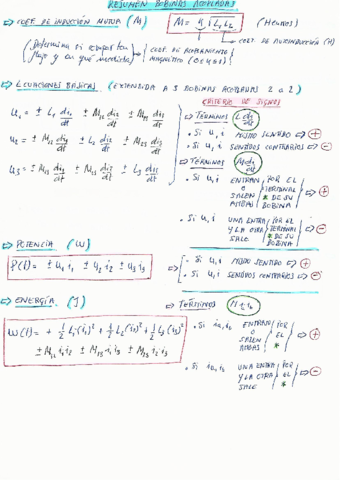 RESUMEN BOBINAS ACOPLADAS
⇒ COEF. DE INDUCCIÓN MUTUA (M) M = K √L₁L₂ (HENRIOS)
COEF. DE AUTOINDUCCIÓN (H)
(Determina si acopla flujo y en qué medida) COEF. DE ACOPLAMIENTO MAGNÉTICO (0≤K≤1)
⇒ ECUACIONES BÁSICAS (EXTENDIDA A 3 BOBINAS ACOPLADAS 2 a 2)
CRITERIO DE SIGNOS
u₁ = ± L₁ di₁/dt ± M₁₂ di₂/dt ± M₁₃ di₃/dt
⇒ TÉRMINOS L di/dt
• Si u, i MISMO SENTIDO ⇒ +
u₂ = ± M₁₂ di₁/dt ± L₂ di₂/dt ± M₂₃ di₃/dt
• Si u, i SENTIDOS CONTRARIOS ⇒ −
⇒ TÉRMINOS M di/dt
u₃ = ± M₁₃ di₁/dt ± M₂₃ di₂/dt ± L₃ di₃/dt
• Si u, i ENTRAN O SALEN AMBAS POR EL TERMINAL * DE SU BOBINA ⇒ +
• Si u, i UNA ENTRA Y LA OTRA SALE POR EL TERMINAL * DE SU BOBINA ⇒ −
⇒ POTENCIA (W)
P(t) = ± u₁ i₁ ± u₂ i₂ ± u₃ i₃
• Si u, i MISMO SENTIDO ⇒ +
• Si u, i SENTIDOS CONTRARIOS ⇒ −
⇒ ENERGÍA (J)
⇒ TÉRMINOS M i₁ i₂
W(t) = + ½ L₁(i₁)² + ½ L₂(i₂)² + ½ L₃(i₃)²
± M₁₂ i₁ i₂ ± M₁₃ i₁ i₃ ± M₂₃ i₂ i₃
• Si i₁, i₂ ENTRAN O SALEN AMBAS POR EL * ⇒ +
• Si i₁, i₂ UNA ENTRA Y LA OTRA SALE POR EL * ⇒ −